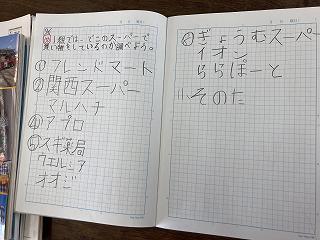 1組では、どこのスーパーで
買い物をしているのか調べよう。
①フレンドマート
②関西スーパー
マルハチ
④アプロ
⑤スギ薬局
ウエルシア
オオジ
ぎょうむスーパー
イオン
ららぽーと
その他